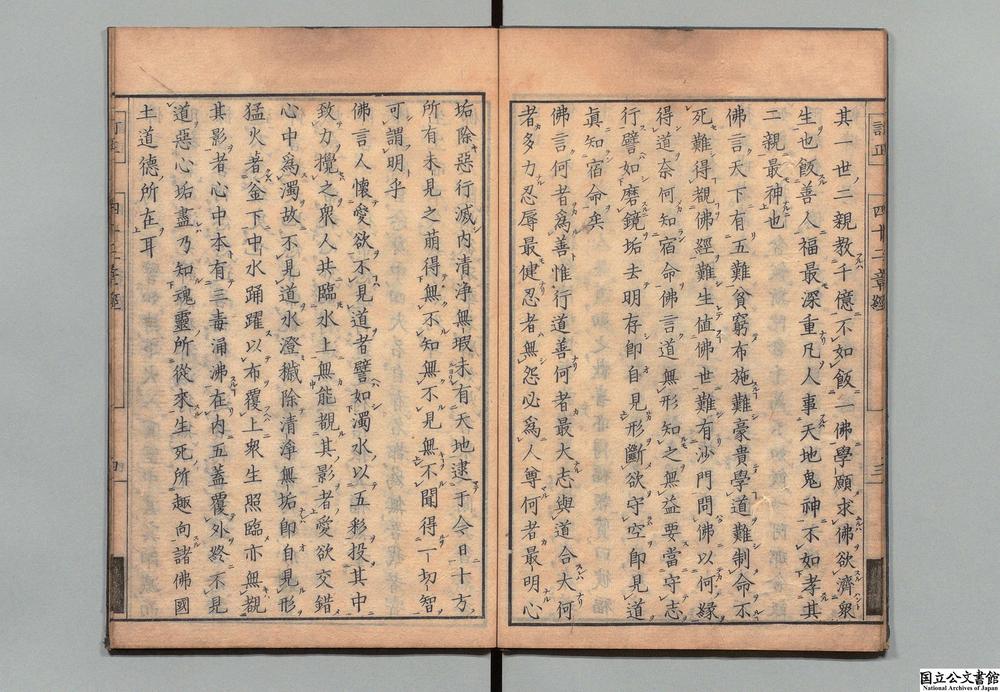 其一世二親教千億不如飯一佛學願求佛欲濟衆
生也飯善人福最深重凡人事天地鬼神不如孝其
二親最神也
佛言天下有五難貧窮布施難豪貴學道難制命不
死難得覩佛經難生值佛世難有沙門問佛以何縁
得道奈何知宿命佛言道無形知之無益要當守志
行譬如磨鏡垢去明存即自見形斷欲守空即見道
眞知宿命矣
佛言何者爲善惟行道善何者最大志與道合大何
者多力忍辱最健忍者無怨必爲人尊何者最明心
垢除惡行滅内清淨無瑕未有天地逮于今日十方
所有未見之萠得無不知無不見無不聞得一切智
可謂明乎
佛言人懷愛欲不見道者譬如濁水以五彩投其中
致力攪之衆人共臨水上無能覩其影者愛欲交錯
心中爲濁故不見道水澄穢除清淨無垢即自見形
猛火著釜下中水踊躍以布覆上衆生照臨亦無覩
其影者心中本有三毒涌沸在内五蓋覆外終不見
道惡心垢盡乃知魂靈所從來生死所趣向諸佛國
土道德所在耳
四十二章經
三
国立公文書館
National Archives of Japan